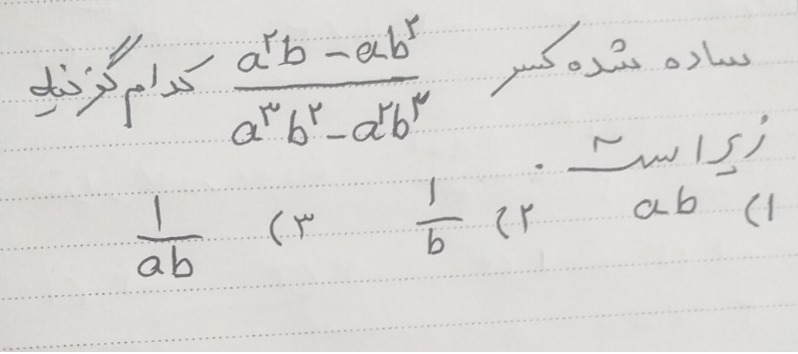 ساده شده کسر (a²b - ab²)/(a³b² - a²b³) کدام گزینه
زیر است.
۱) ab ۲) 1/b ۳) 1/ab